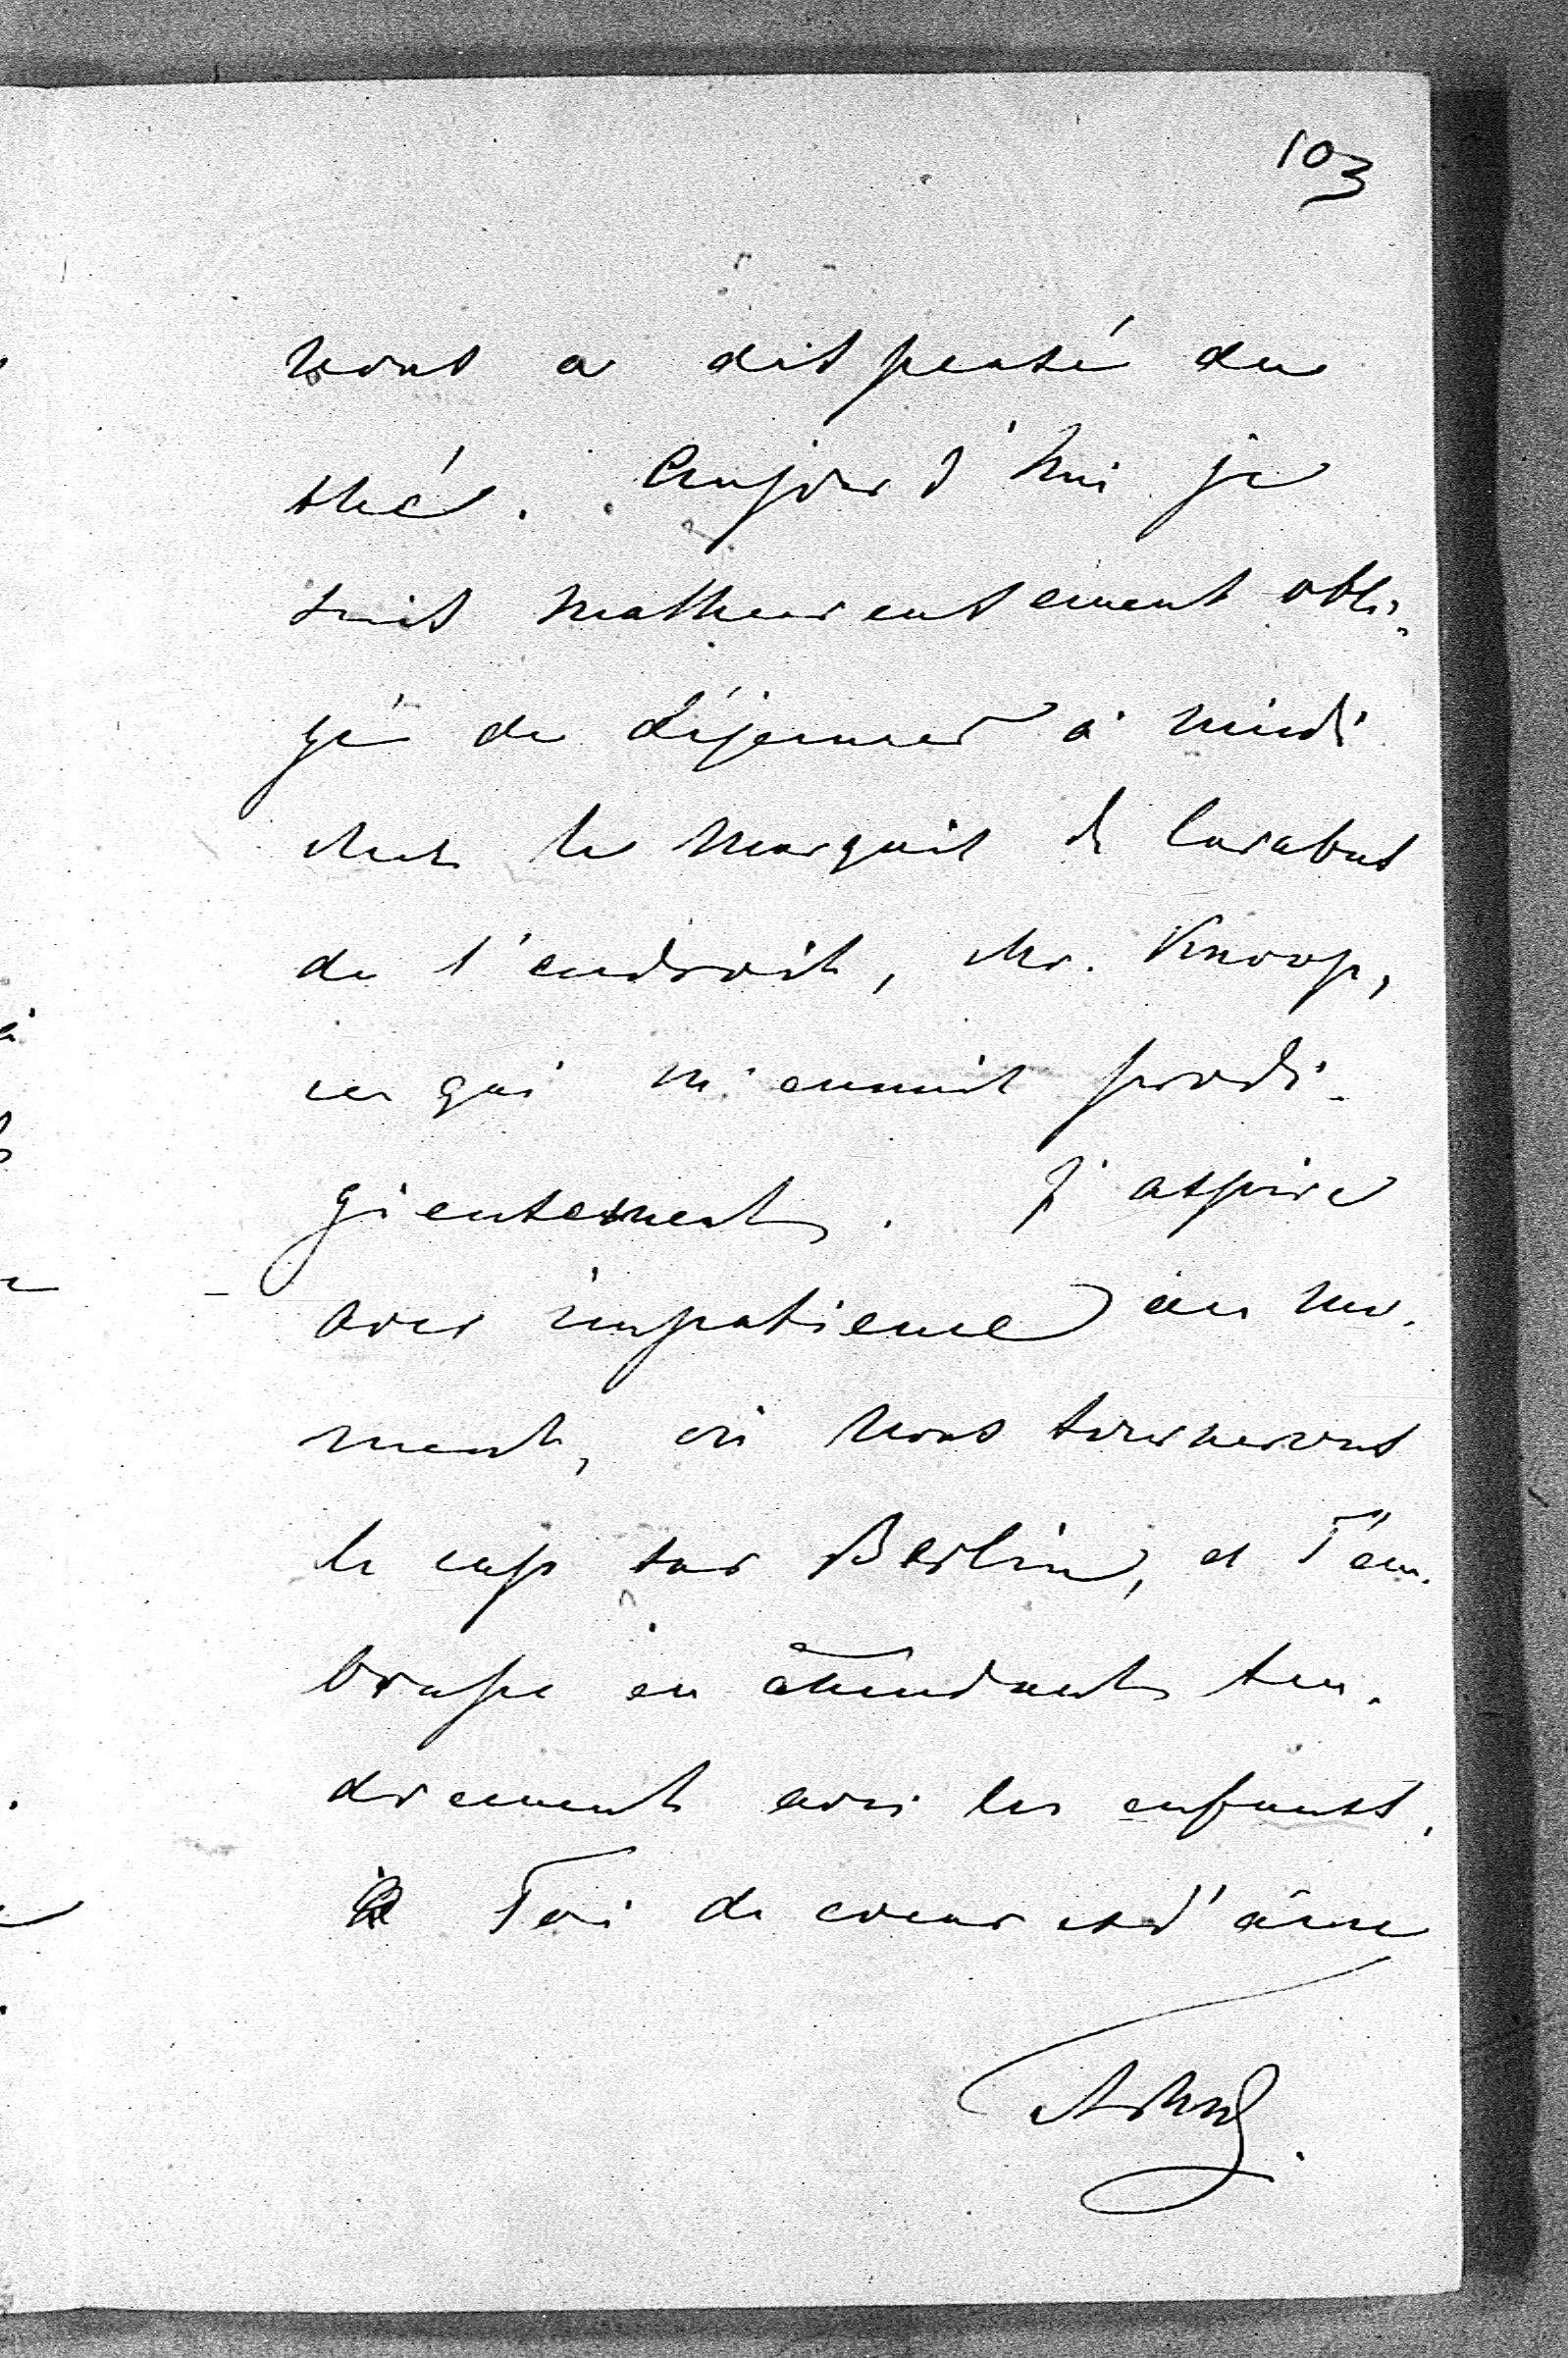 103
nous a dispensé du
thé. Aujourd'hui je
suis malheureusement obli-
gé de déjeuner à midi
chez le Marquis de Carabas
de l'endroit, Mr. Knoop,
ce qui m'ennuie prodi-
gieusement. J'aspire
avec impatience au mo-
ment, où nous tournerons
le cap sur Berlin, et T'em-
brasse en attendant ten-
drement avec les enfants.
Toi de coeur et d'âme